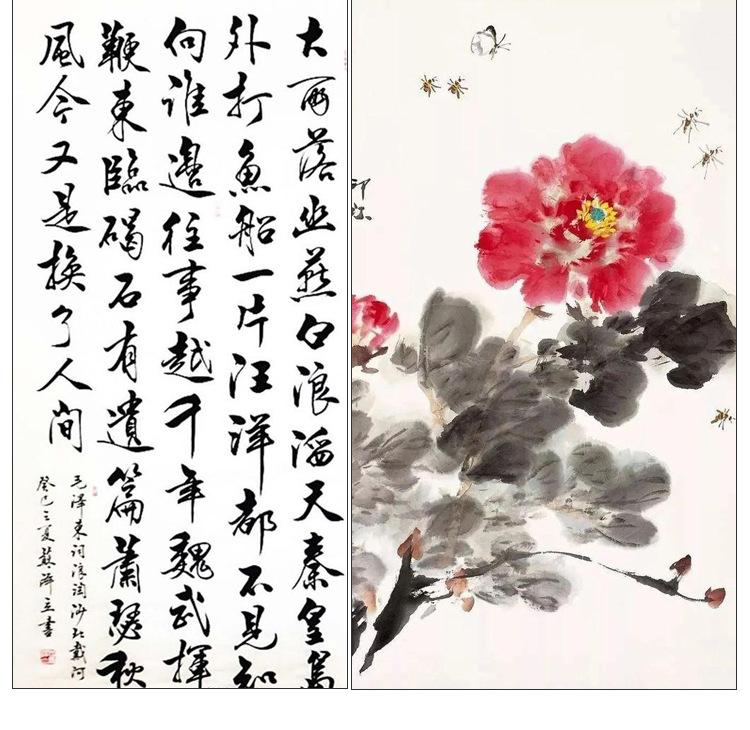 大雨落幽燕白浪滔天秦皇島
外打魚船一片汪洋都不見知
向誰邊往事越千年魏武揮
鞭東臨碣石有遺篇蕭瑟秋
風今又是換了人間
毛澤東詞浪淘沙北戴河
癸巳之夏蘇澤立書